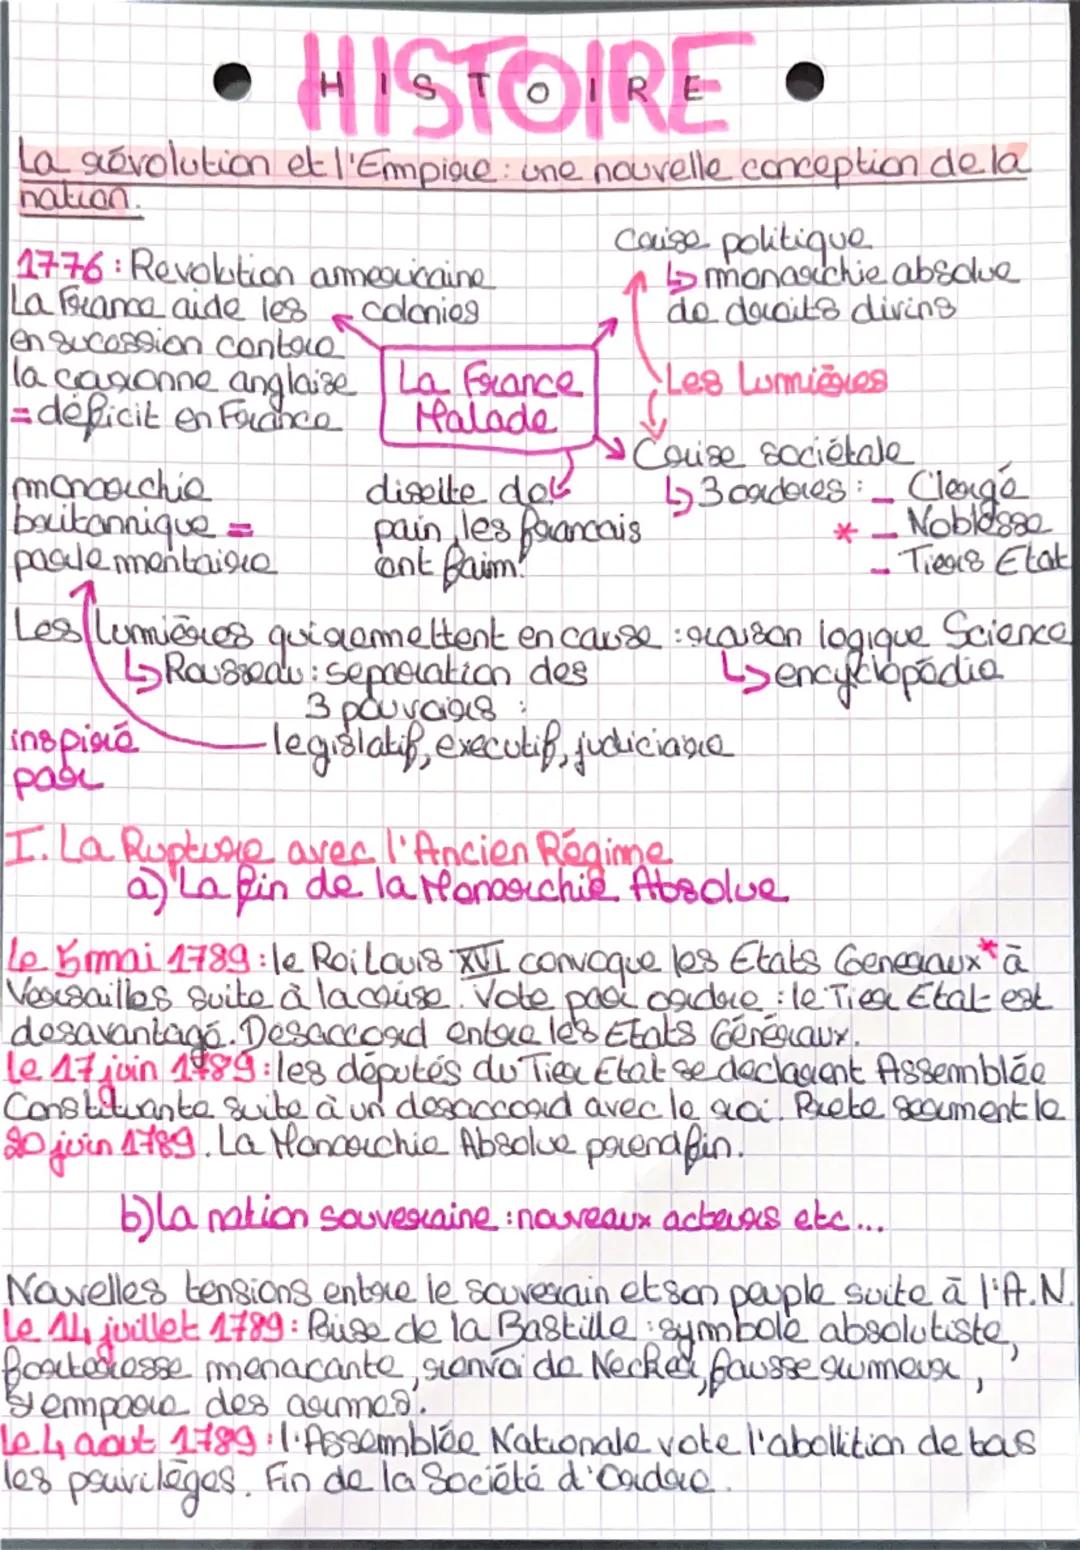 HISTOIRE
La révolution et l'Empire : une nouvelle conception de la
nation.
1776 : Revolution americaine
La France aide les colonies
en sucession contre
la couronne anglaise
= déficit en France
monarchie
britannique =
parlementaire
La France
Malade
Crise politique
↳ monarchie absolue
de droits divins
Les Lumières
Crise sociétale
↳ 3 ordres : - Clergé
* - Noblesse
- Tiers Etat
disette de
pain, les francais
ont faim!
Les Lumières qui remettent en cause : raison logique Science
↳ Rousseau : separation des
3 pouvoirs :
legislatif, executif, judiciaire
↳ encyclopédie
inspiré
par
I. La Rupture avec l'Ancien Régime
a) La fin de la Monarchie Absolue
Le 5 mai 1789 : le Roi Louis XVI convoque les Etats Generaux * à
Versailles suite à la crise. Vote par ordre : le Tier Etat est
desavantagé. Desaccord entre les Etats Généraux.
Le 17 juin 1789 : les députés du Tier Etat se declarent Assemblée
Constituante suite à un desaccord avec le roi. Prete serment le
20 juin 1789. La Monarchie Absolue prend fin.
b) la nation souveraine : nouveaux acteurs etc...
Nouvelles tensions entre le souverain et son peuple suite à l'A.N.
Le 14 juillet 1789 : Prise de la Bastille : symbole absolutiste,
forteresse menacante, renvoi de Necker, fausse rumeur,
s'empare des armes.
Le 4 aout 1789 : l'Assemblée Nationale vote l'abollition de tous
les privilèges. Fin de la Société d'Ordre.